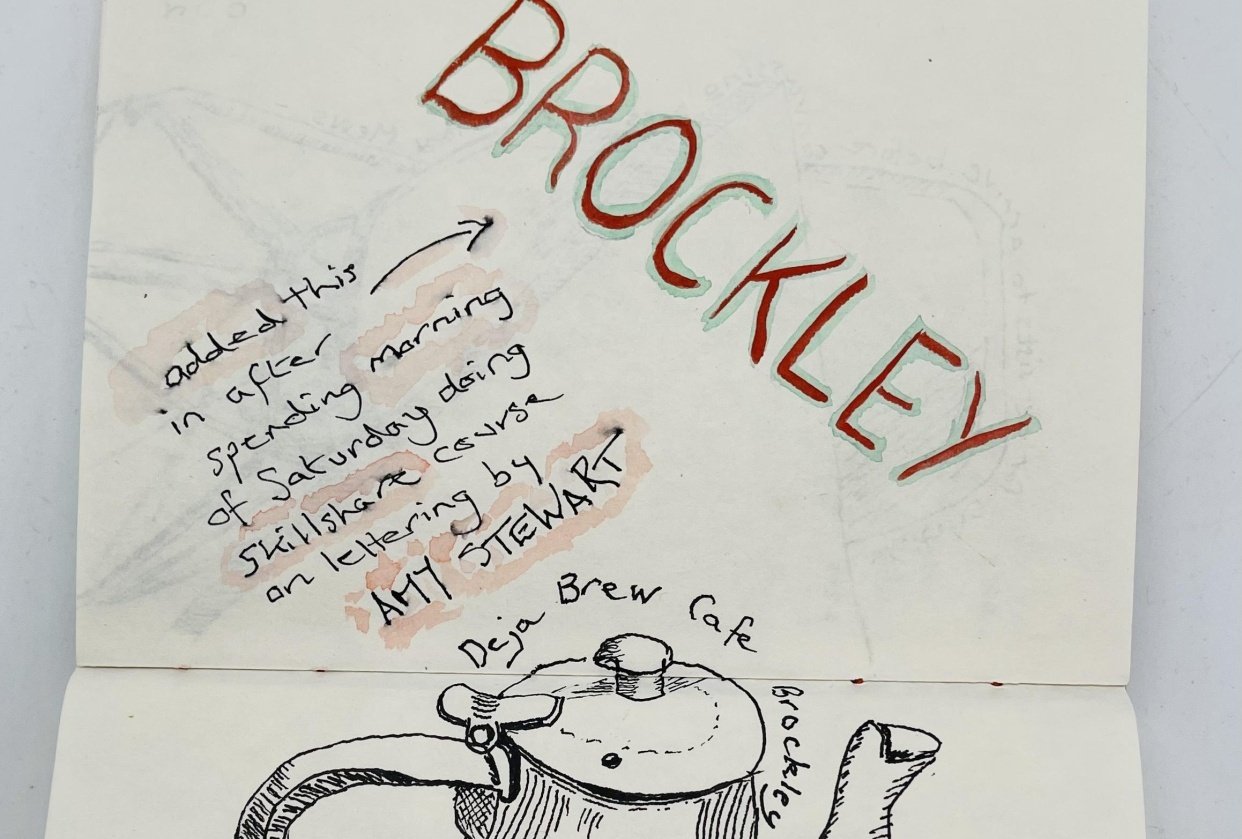 BROCKLEY
added this
in after
spending morning
of Saturday doing
Skillshare course
on lettering by
AMY STEWART
Deja Brew Cafe
Brockley